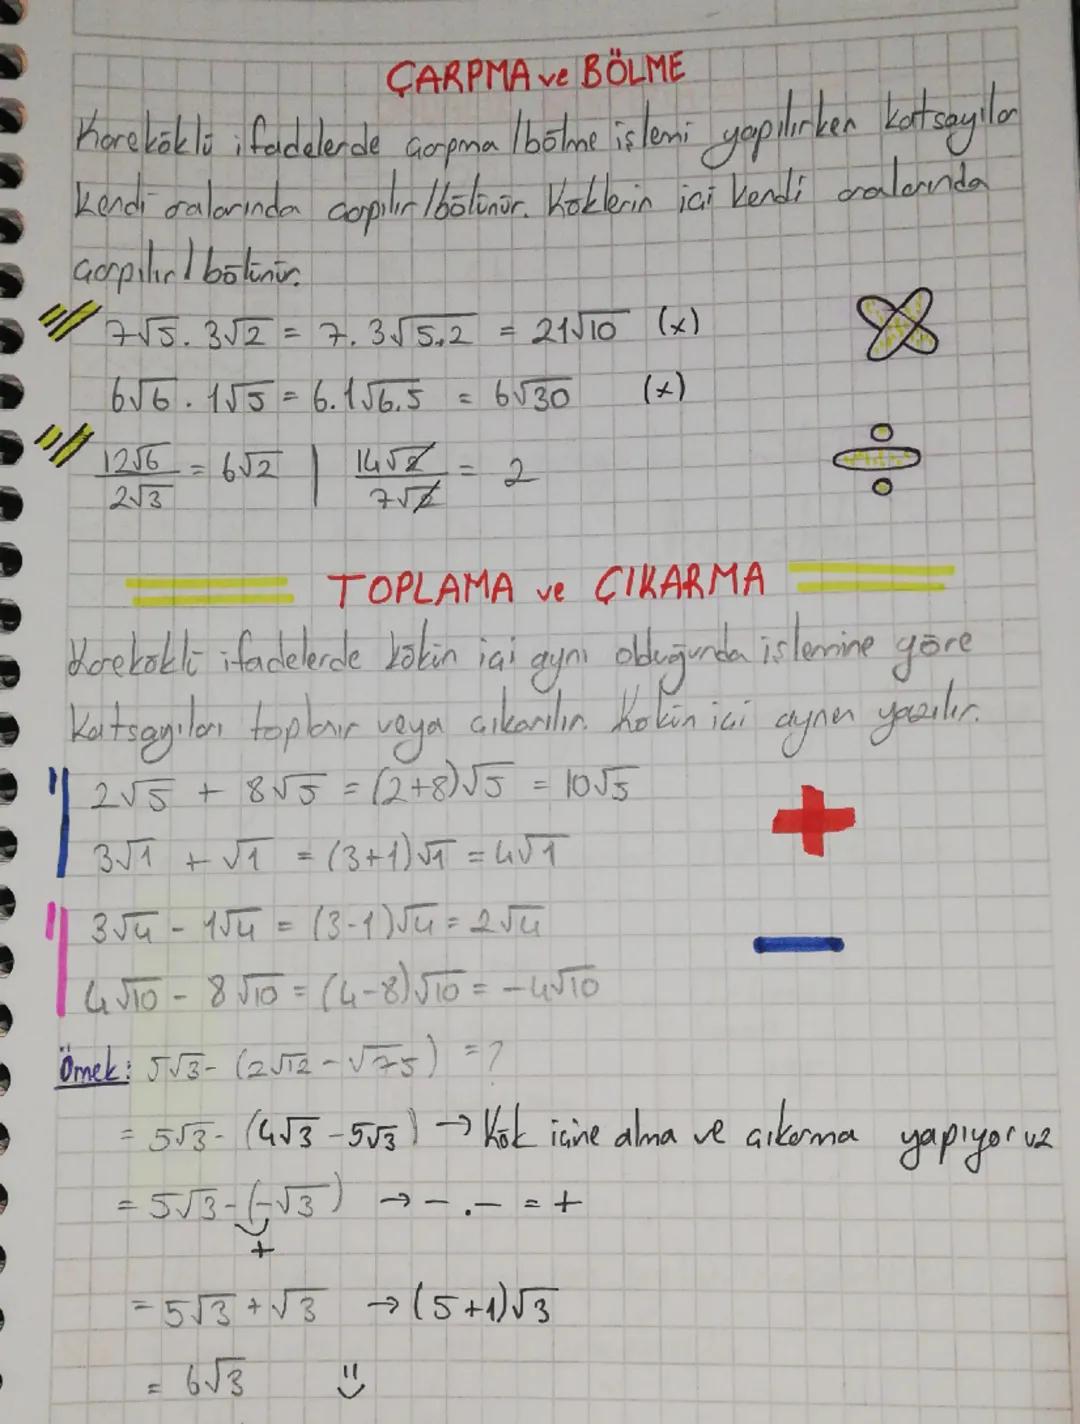 ÇARPMA ve BÖLME
Kareköklü ifadelerde çarpma / bölme işlemi yapılırken katsayılar
kendi aralarında çarpılır / bölünür. Köklerin içi kendi aralarında
çarpılır / bölünür.
7√5 . 3√2 = 7.3√5.2 = 21√10 (x)
6√6 . 1√5 = 6.1√6.5 = 6√30 (x)
12√6 / 2√3 = 6√2 | 14√2 / 7√2 = 2
TOPLAMA ve ÇIKARMA
Kareköklü ifadelerde kökün içi aynı olduğunda işlemine göre
katsayıları toplanır veya çıkarılır. Kökün içi aynen yazılır.
2√5 + 8√5 = (2+8)√5 = 10√5
3√1 + √1 = (3+1)√1 = 4√1
3√4 - 1√4 = (3-1)√4 = 2√4
4√10 - 8√10 = (4-8)√10 = -4√10
Örnek: 5√3 - (2√12 - √75) = ?
= 5√3 - (4√3 - 5√3) → Kök içine alma ve çıkarma yapıyoruz
= 5√3 - (-√3) → - . - = +
+
= 5√3 + √3 → (5+1)√3
= 6√3